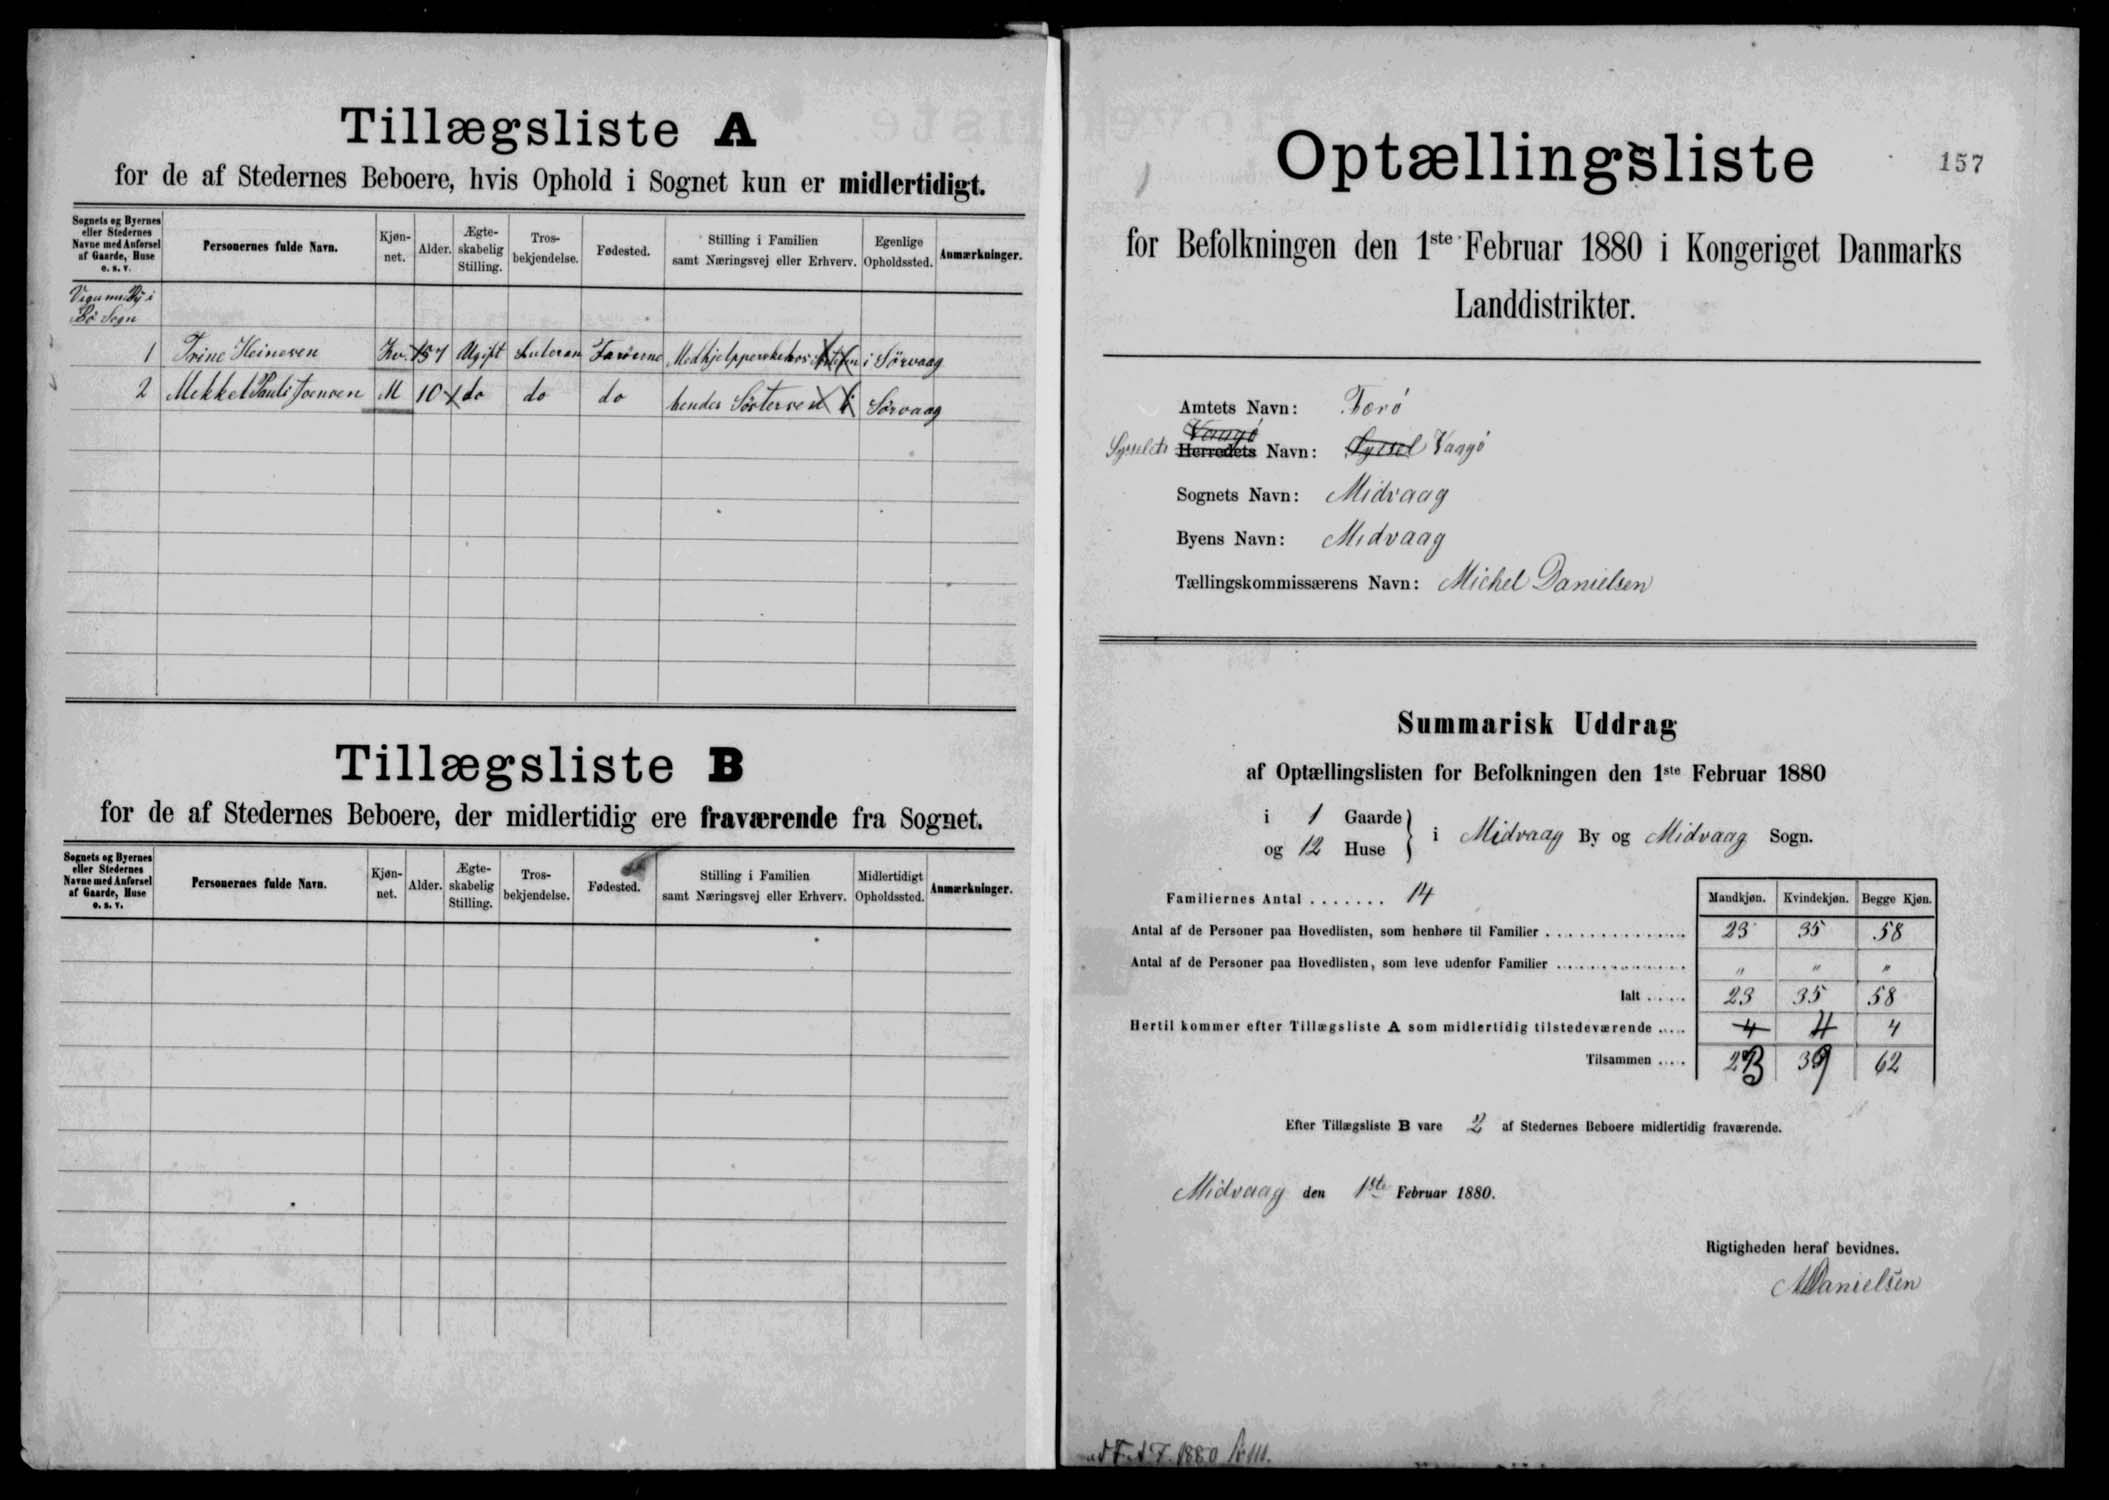 Tillægsliste A
for de af Stedernes Beboere, hvis Ophold i Sognet kun er midlertidigt.
Sognets og Byernes eller Stedernes Navne med Anførsel af Gaarde, Huse o. s. v.
Personernes fulde Navn.
Kjøn-net.
Alder.
Ægte-skabelig Stilling.
Tros-bekjendelse.
Fødested.
Stilling i Familien samt Næringsvej eller Erhverv.
Egenlige Opholdssted.
Anmærkninger.
By i
Bö Sogn
1 Trine Heinesen Kv. Ugift Luteran Færöerne i Sörvaag
2 Mekkel Pauli Joensen M 10 do do do hendes Sörvaag
Tillægsliste B
for de af Stedernes Beboere, der midlertidig ere fraværende fra Sognet.
Sognets og Byernes eller Stedernes Navne med Anførsel af Gaarde, Huse o. s. v.
Personernes fulde Navn.
Kjøn-net.
Alder.
Ægte-skabelig Stilling.
Tros-bekjendelse.
Fødested.
Stilling i Familien samt Næringsvej eller Erhverv.
Midlertidigt Opholdssted.
Anmærkninger.
Optællingsliste
157
for Befolkningen den 1ste Februar 1880 i Kongeriget Danmarks
Landdistrikter.
Amtets Navn: Færö
Vaagö
Sysselets Herredets Navn: Syssel Vaagö
Sognets Navn: Midvaag
Byens Navn: Midvaag
Tællingskommissærens Navn: Michel Danielsen
Summarisk Uddrag
af Optællingslisten for Befolkningen den 1ste Februar 1880
i 1 Gaarde
og 12 Huse } i Midvaag By og Midvaag Sogn.
Familiernes Antal ....... 14
Mandkjøn. Kvindekjøn. Begge Kjøn.
Antal af de Personer paa Hovedlisten, som henhøre til Familier ................. 23 35 58
Antal af de Personer paa Hovedlisten, som leve udenfor Familier ................ " " "
Ialt ...... 23 35 58
Hertil kommer efter Tillægsliste A som midlertidig tilstedeværende ..... 4 4 4
Tilsammen ..... 23 39 62
Efter Tillægsliste B vare 2 af Stedernes Beboere midlertidig fraværende.
Midvaag den 1ste Februar 1880.
Rigtigheden heraf bevidnes.
MDanielsen